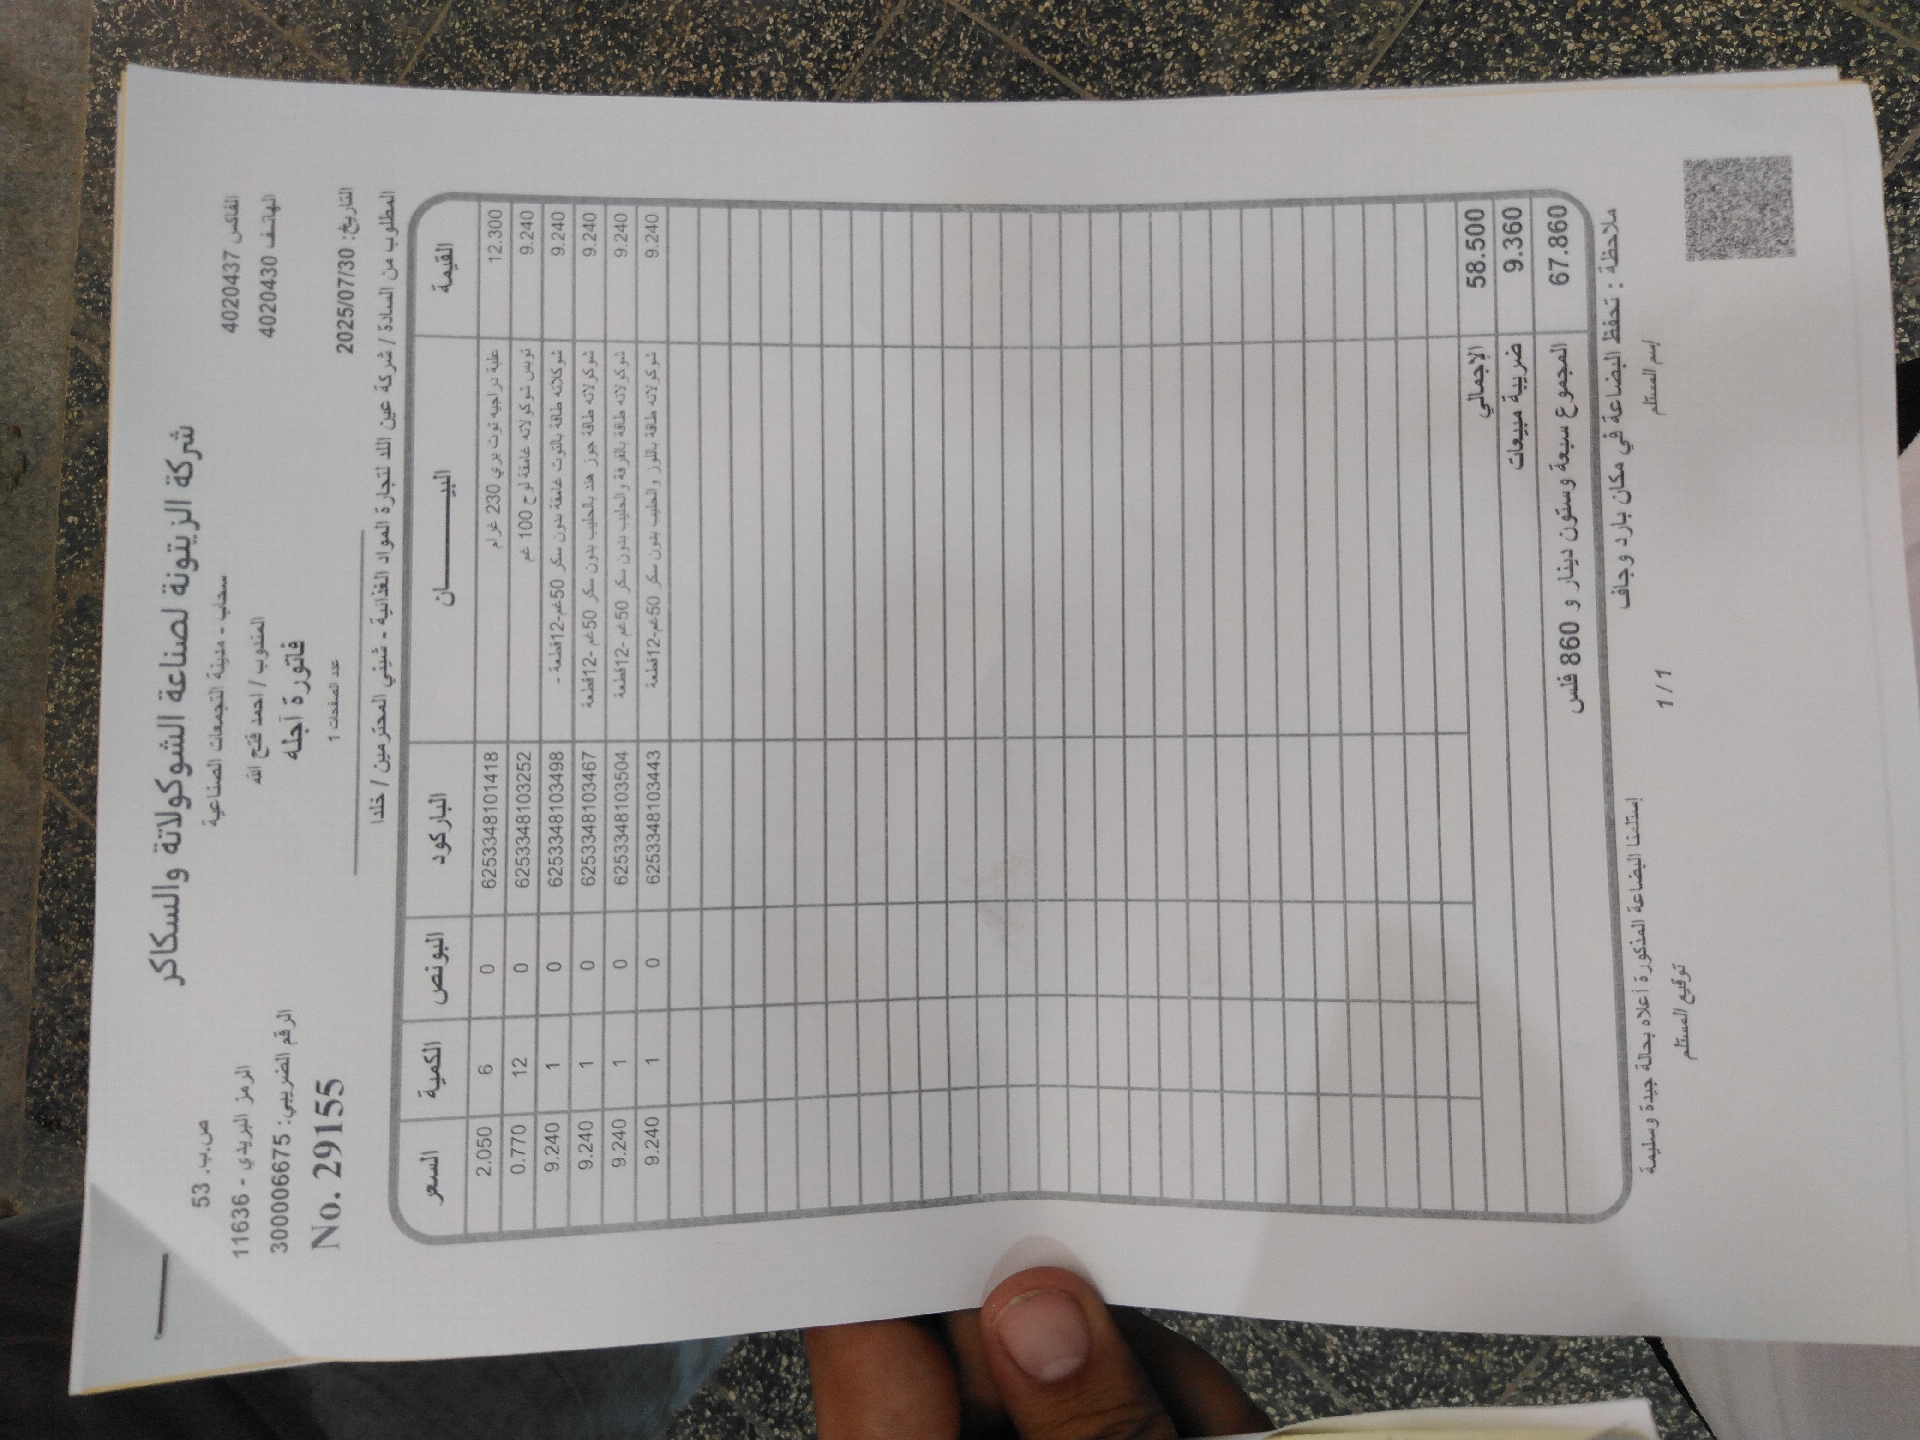 شركة الزيتونة لصناعة الشوكولاتة والسكاكر
ص.ب. 53
سحاب - مدينة التجمعات الصناعية
الفاكس 4020437
الرمز البريدي - 11636
المندوب / احمد فتح الله
الهاتف 4020430
الرقم الضريبي: 300006675
فاتورة آجله
No. 29155
عدد الصفحات 1
التاريخ: 2025/07/30
المطلوب من السادة / شركة عين اللد لتجارة المواد الغذائية - شيني المحترمين / خلدا
السعر الكمية البونص الباركود البيـــــان القيمة
2.050 6 0 6253348101418 علبة دراجيه توت بري 230 غرام 12.300
0.770 12 0 6253348103252 نويس شوكولاته غامقة لوح 100 غم 9.240
9.240 1 0 6253348103498 شوكلاته طاقة بالتوت غامقة بدون سكر 50غم-12قطعة - 9.240
9.240 1 0 6253348103467 شوكولاته طاقة جوز هند بالحليب بدون سكر 50غم -12قطعة 9.240
9.240 1 0 6253348103504 شوكولاته طاقة بالقرفة والحليب بدون سكر 50غم -12قطعة 9.240
9.240 1 0 6253348103443 شوكولاته طاقة باللوز والحليب بدون سكر 50غم-12قطعة 9.240
الاجمالي 58.500
ضريبة مبيعات 9.360
المجموع سبعة وستون دينار و 860 فلس 67.860
ملاحظة : تحفظ البضاعة في مكان بارد وجاف
إستلمنا البضاعة المذكورة أعلاه بحالة جيدة وسليمة
إسم المستلم
1 / 1
توقيع المستلم